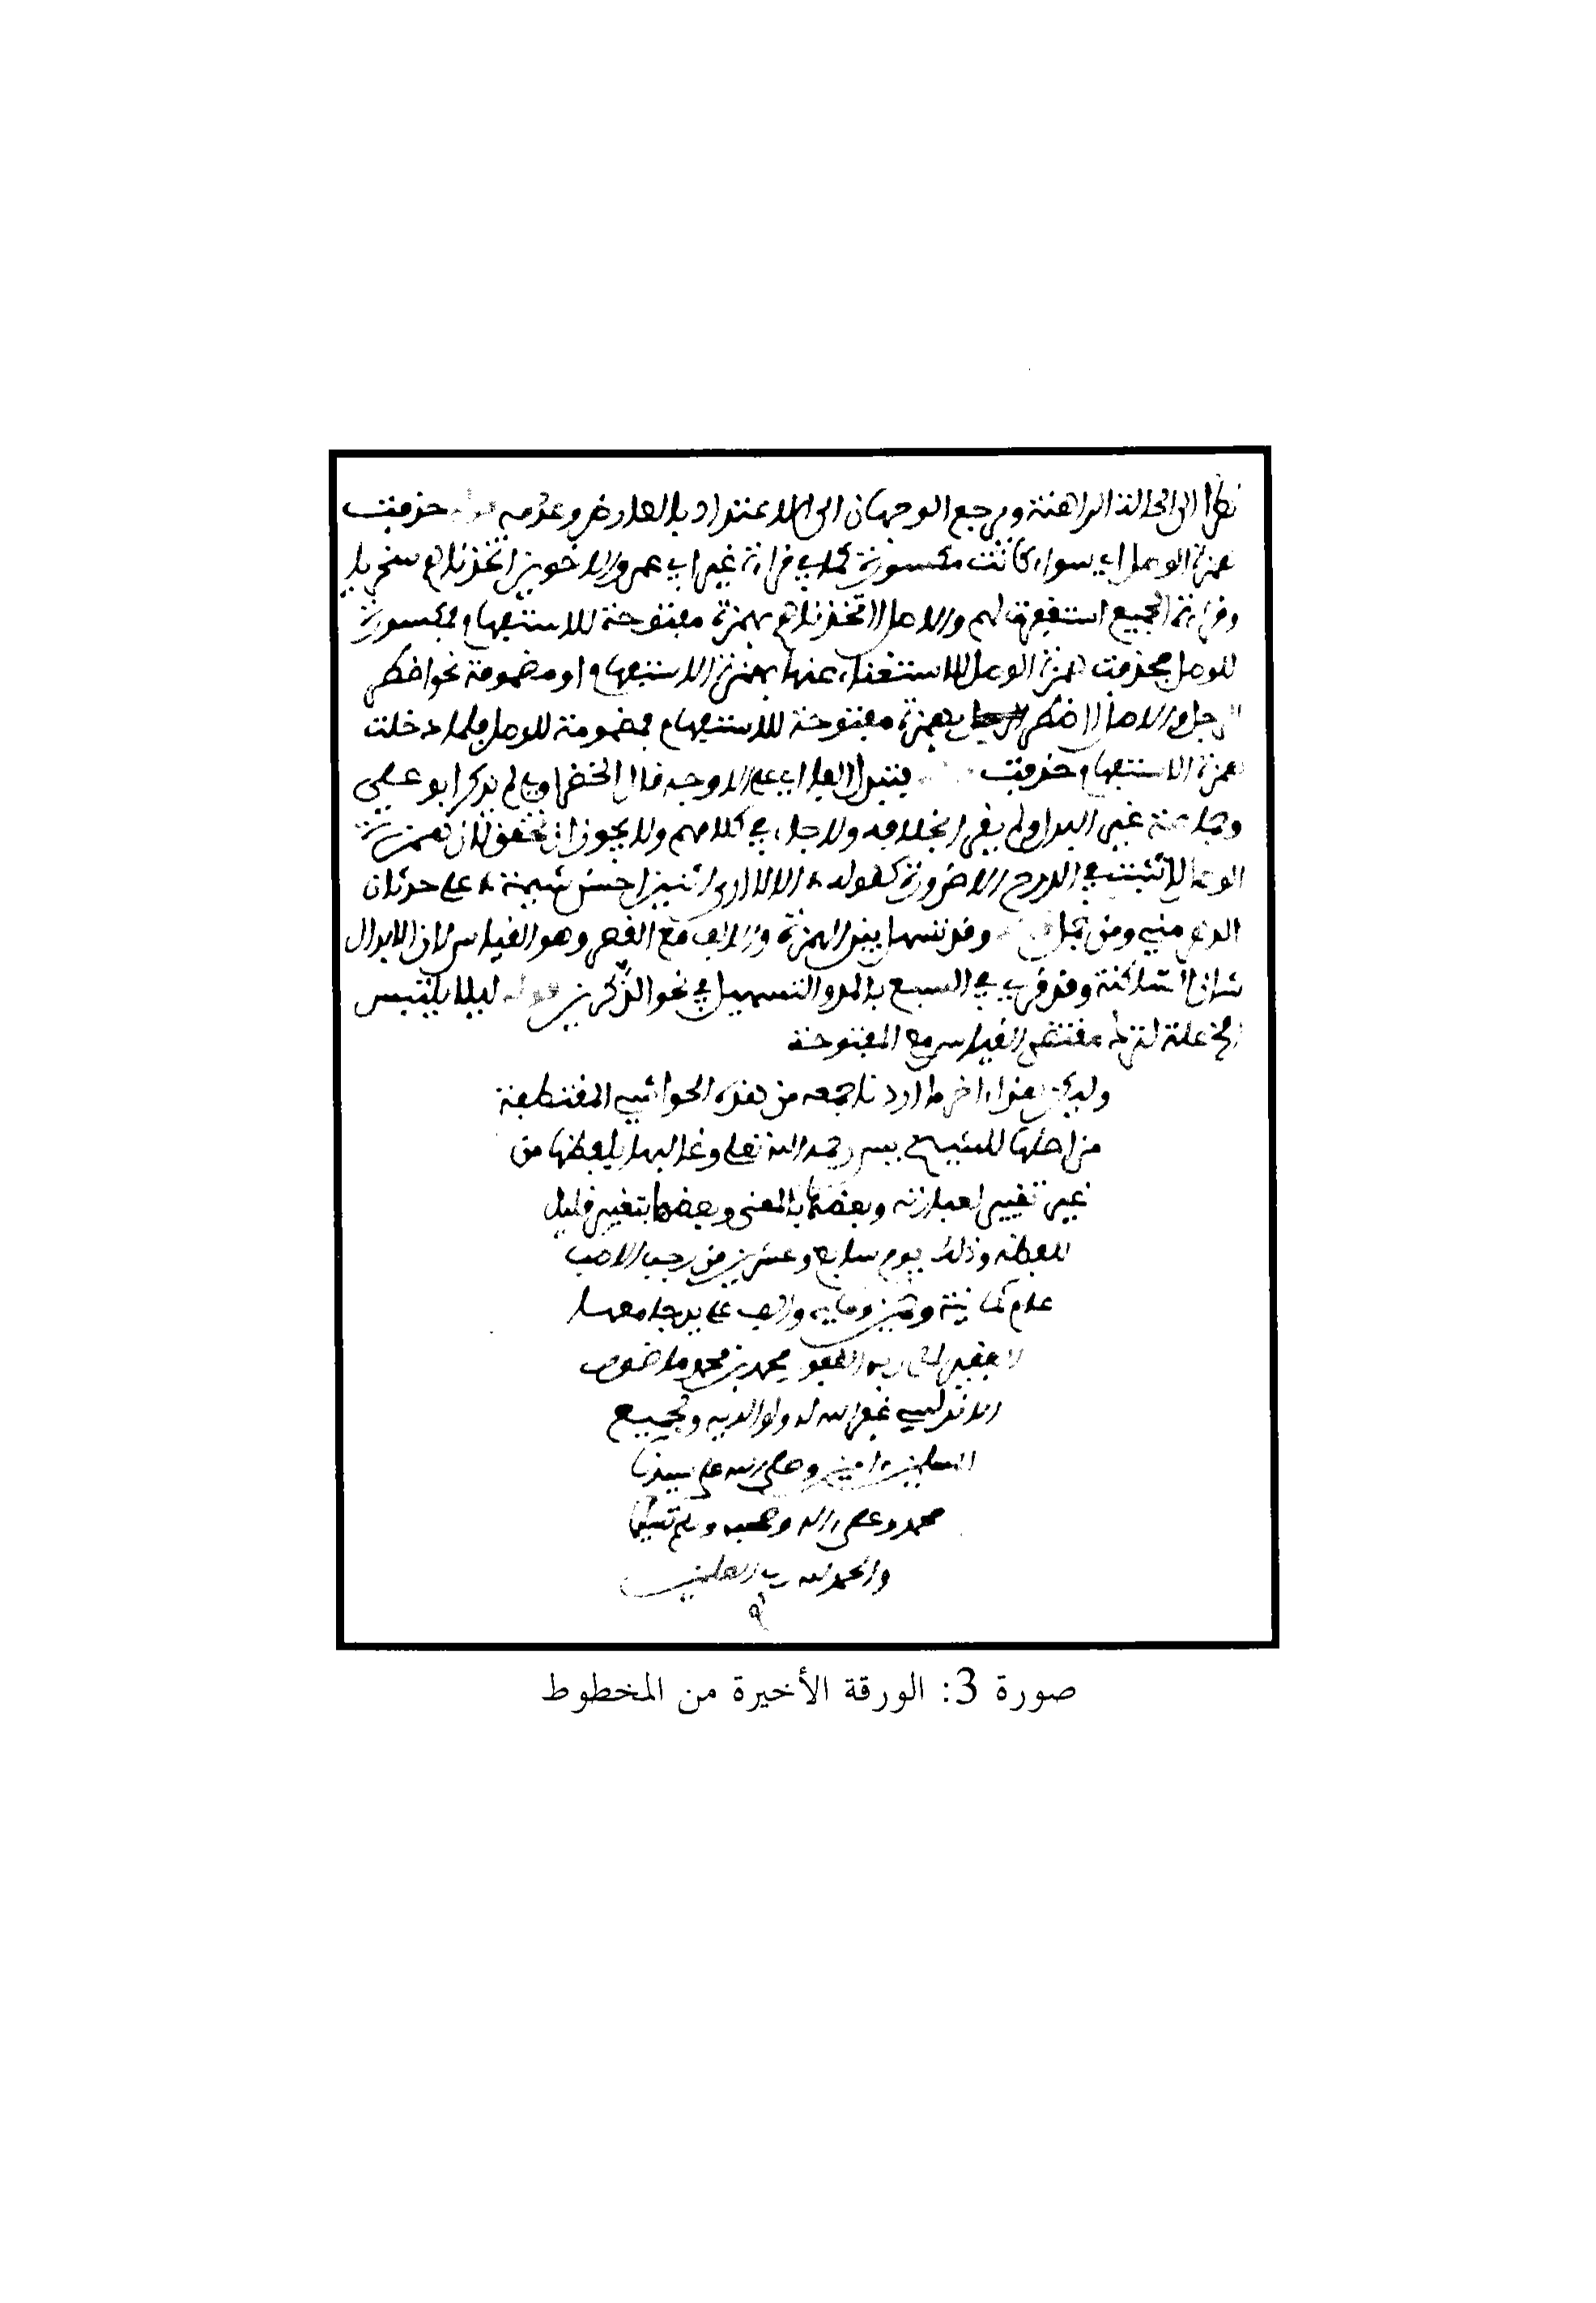 نظرا الى الحالة الراهنة ومرجع الوجهان الى الاعتداد بالعارض وعدمه قوله حذفت
همزة الوصل اي سواء كانت مكسورة كما في قراءة غير ابي عمرو والاخوين اتخذناهم سخريا
وقراءة الجميع استغفرت لهم والاصل ااتخذناهم بهمزة مفتوحة للاستفهام فمكسورة
للوصل فحذفت همزة الوصل للاستغناء عنها بهمزة الاستفهام او مضمومة نحو اضطر
الرجل والاصل ااضطر بهمزة مفتوحة للاستفهام فمضمومة للوصل فلما دخلت
همزة الاستفهام حذفت تبدل الفا اي على الاوجه قال الخضراوي لم يذكر ابو علي
وجماعة غير البدل ولم يقرا بخلافه ولا جاء في كلامهم ولا يجوز ان تحقق لان همزة
الوصل لا تثبت في الدرج الا ضرورة كقوله الا لا ارى اثنين احسن شيمة على حدثان
الدهر مني ومن جمل وقد تسهل بين الهمزة والالف مع القصر وهو القياس لان الابدال
شان الساكنة وقد قرئ في السبع بالمد والتسهيل في نحو الذكرين قوله ليلا يلتبس
الخ علة لترك مقتضى القياس مع المفتوحة
وليكن هذا ءاخر ما اردنا جمعه من هذه الحواشي المقتطفة
من اصلها للشيخ يس رحمه الله تعلى وغالبها بلفظها من
غير تغيير لعبارته وبعضها بالمعنى وبعضها بتغير قليل
للفظه وذلك يوم سابع وعشرين من رجب الاصب
عام ثمانية ومايه والف على يد جامعها
الفقير الى ربه العفو محمد بن محمد ماضور
الاندلسي غفر الله له ولوالديه ولجميع
المسلمين ءامين وصلى الله على سيدنا
محمد وعلى ءاله وصحبه وسلم تسليما
والحمد لله رب العلمين
صورة 3: الورقة الأخيرة من المخطوط